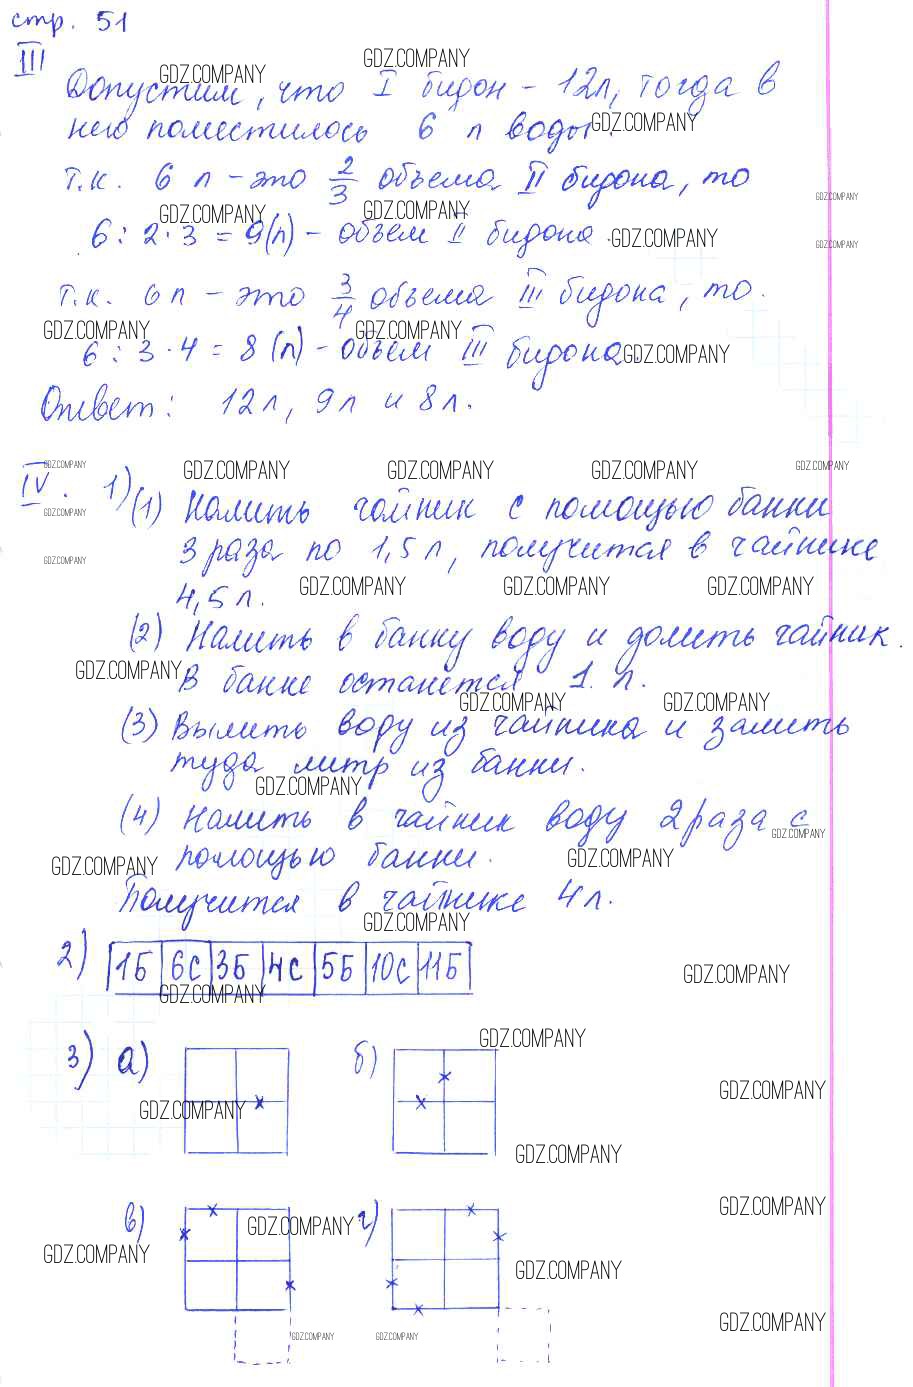 стр. 51
III
GDZ.COMPANY GDZ.COMPANY
Допустим, что I бидон - 12л, тогда в
него поместилось 6 л воды. GDZ.COMPANY
т.к. 6 л - это 2/3 объема II бидона, то
GDZ.COMPANY
GDZ.COMPANY GDZ.COMPANY
6 : 2 · 3 = 9(л) - объем II бидона. GDZ.COMPANY
GDZ.COMPANY
т.к. 6 л - это 3/4 объема III бидона, то.
GDZ.COMPANY GDZ.COMPANY
6 : 3 · 4 = 8 (л) - объем III бидона. GDZ.COMPANY
Ответ: 12л, 9л и 8л.
GDZ.COMPANY GDZ.COMPANY GDZ.COMPANY GDZ.COMPANY GDZ.COMPANY
IV. 1) (1) Налить чайник с помощью банки
GDZ.COMPANY
3 раза по 1,5 л, получится в чайнике
GDZ.COMPANY
4,5 л. GDZ.COMPANY GDZ.COMPANY GDZ.COMPANY
(2) Налить в банку воду и долить чайник.
GDZ.COMPANY В банке останется 1 л.
GDZ.COMPANY GDZ.COMPANY
(3) Вылить воду из чайника и залить
туда литр из банки.
GDZ.COMPANY
(4) Налить в чайник воду 2 раза с
GDZ.COMPANY
GDZ.COMPANY помощью банки. GDZ.COMPANY
Получится в чайнике 4 л.
GDZ.COMPANY
2) 1Б 6С 3Б 4С 5Б 10С 11Б
GDZ.COMPANY GDZ.COMPANY
GDZ.COMPANY
3) а) б)
GDZ.COMPANY GDZ.COMPANY
GDZ.COMPANY
GDZ.COMPANY
в) GDZ.COMPANY г)
GDZ.COMPANY GDZ.COMPANY
GDZ.COMPANY
GDZ.COMPANY GDZ.COMPANY